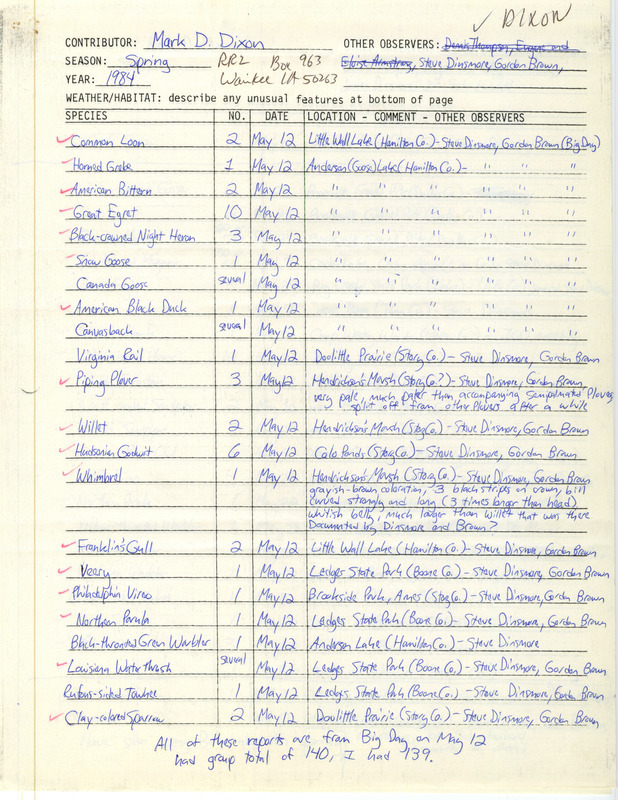 ✓ DIXON
CONTRIBUTOR: Mark D. Dixon OTHER OBSERVERS: Denis Thompson, Eugene and
SEASON: Spring RR2 Box 963 Eloise Armstrong, Steve Dinsmore, Gordon Brown,
YEAR: 1984 Waukee IA 50263
WEATHER/HABITAT: describe any unusual features at bottom of page
SPECIES NO. DATE LOCATION - COMMENT - OTHER OBSERVERS
Common Loon 2 May 12 Little Wall Lake (Hamilton Co.) - Steve Dinsmore, Gordon Brown (Big Day)
Horned Grebe 1 May 12 Anderson (Goose) Lake (Hamilton Co.) - " " "
American Bittern 2 May 12 " " " " " "
Great Egret 10 May 12 " " " " " "
Black-crowned Night Heron 3 May 12 " " " " " "
Snow Goose 1 May 12 " " " " " "
Canada Goose several May 12 " " " " " "
American Black Duck 1 May 12 " " " " " "
Canvasback several May 12 " " " " " "
Virginia Rail 1 May 12 Doolittle Prairie (Story Co.) - Steve Dinsmore, Gordon Brown
Piping Plover 3 May 12 Hendrickson's Marsh (Story Co.?) - Steve Dinsmore, Gordon Brown,
very pale, much paler than accompanying Semipalmated Plovers,
split off from other Plovers after a while
Willet 2 May 12 Hendrickson's Marsh (Story Co.) - Steve Dinsmore, Gordon Brown
Hudsonian Godwit 6 May 12 Colo Ponds (Story Co.) - Steve Dinsmore, Gordon Brown
Whimbrel 1 May 12 Hendrickson's Marsh (Story Co.) - Steve Dinsmore, Gordon Brown
grayish-brown coloration, 3 black stripes on crown, bill
curved strongly and long (3 times longer than head),
whitish belly, much larger than Willet that was there
Documented by Dinsmore and Brown?
Franklin's Gull 2 May 12 Little Wall Lake (Hamilton Co.) - Steve Dinsmore, Gordon Brown
Veery 1 May 12 Ledges State Park (Boone Co.) - Steve Dinsmore, Gordon Brown
Philadelphia Vireo 1 May 12 Brookside Park, Ames (Story Co.) - Steve Dinsmore, Gordon Brown
Northern Parula 1 May 12 Ledges State Park (Boone Co.) - Steve Dinsmore, Gordon Brown
Black-throated Green Warbler 1 May 12 Anderson Lake (Hamilton Co.) - Steve Dinsmore
Louisiana Waterthrush several May 12 Ledges State Park (Boone Co.) - Steve Dinsmore, Gordon Brown
Rufous-sided Towhee 1 May 12 Ledges State Park (Boone Co.) - Steve Dinsmore, Gordon Brown
Clay-colored Sparrow 2 May 12 Doolittle Prairie (Story Co.) - Steve Dinsmore, Gordon Brown
All of these reports are from Big Day on May 12
had group total of 140, I had 139.